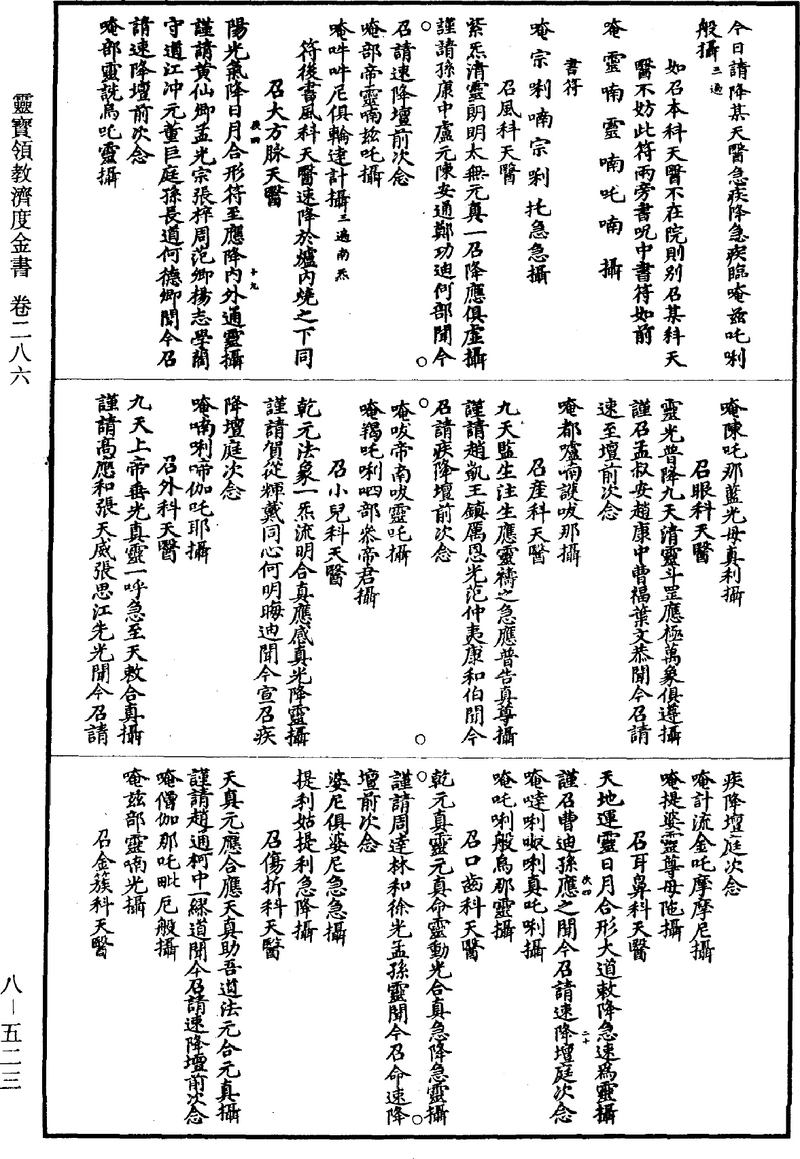 今日請降某天醫急疾降急疾臨唵茲吒唎
般攝三遍
如召本科天醫不在院則別召某科天
醫不妨此符兩旁書呪中書符如前
唵靈喃靈喃吒喃攝
書符
唵宗唎喃宗唎托急急攝
召風科天醫
紫炁清靈朗明太無元真一召降應俱虛攝
謹請孫康中盧元陳安通鄭功迪何部聞今
召請速降壇前次念
唵部帝靈喃茲吒攝
唵吽吽尼俱輪達計攝三遍南炁
符後書風科天醫速降於爐內燒之下同
召大方脉天醫
陽光氣降日月合形符至應降内外通靈攝
謹請黃仙卿孟光宗張梓周范卿楊志學閻
守道江沖元董巨庭孫長道何德卿聞今召
請速降壇前次念
唵部靈詵烏吒靈攝
唵陳吒那藍光母真利攝
召眼科天醫
靈光普降九天清靈斗罡應極萬象俱遵攝
謹召孟叔安趙康中曹福葉文恭聞今召請
速至壇前次念
唵都嚧喃談唆那攝
召產科天醫
九天監生注生應靈禱之急應普告真尊攝
謹請趙凱王鎮厲恩光范仲夷康和伯聞今
召請疾降壇前次念
唵唆帝南唆靈吒攝
唵羯吒唎呬部叅帝君攝
召小兒科天醫
乾元法象一炁流明合真應感真光降靈攝
謹請賀從輝戴同心何明晦迪聞今宣召疾
降壇庭次念
唵喃唎啼伽吒耶攝
召外科天醫
九天上帝垂光真靈一呼急至天敕合真攝
謹請高應和張天威張思江先光聞今召請
疾降壇庭次念
唵計流金吒摩摩尼攝
唵提婆靈尊母陁攝
召耳鼻科天醫
天地運靈日月合形大道敕降急速爲靈攝
謹召曹迪孫應之聞今召請速降壇庭次念
唵噠唎㗚唎真吒唎攝
唵吒唎般烏那靈攝
召口齒科天醫
乾元真靈元真命靈動光合真急降急靈攝
謹請周達林和徐光孟孫靈聞今召命速降
壇前次念
婆尼俱婆尼急急攝
提利姑提利急降攝
召傷折科天醫
天真元應合應天真助吾道法元合元真攝
謹請趙通柯中一繆道聞今召請速降壇前次念
唵僧伽那吒毗厄般攝
唵茲部靈喃光攝
召金簇科天醫
靈寶領教濟度金書 卷二八六
八－五二三